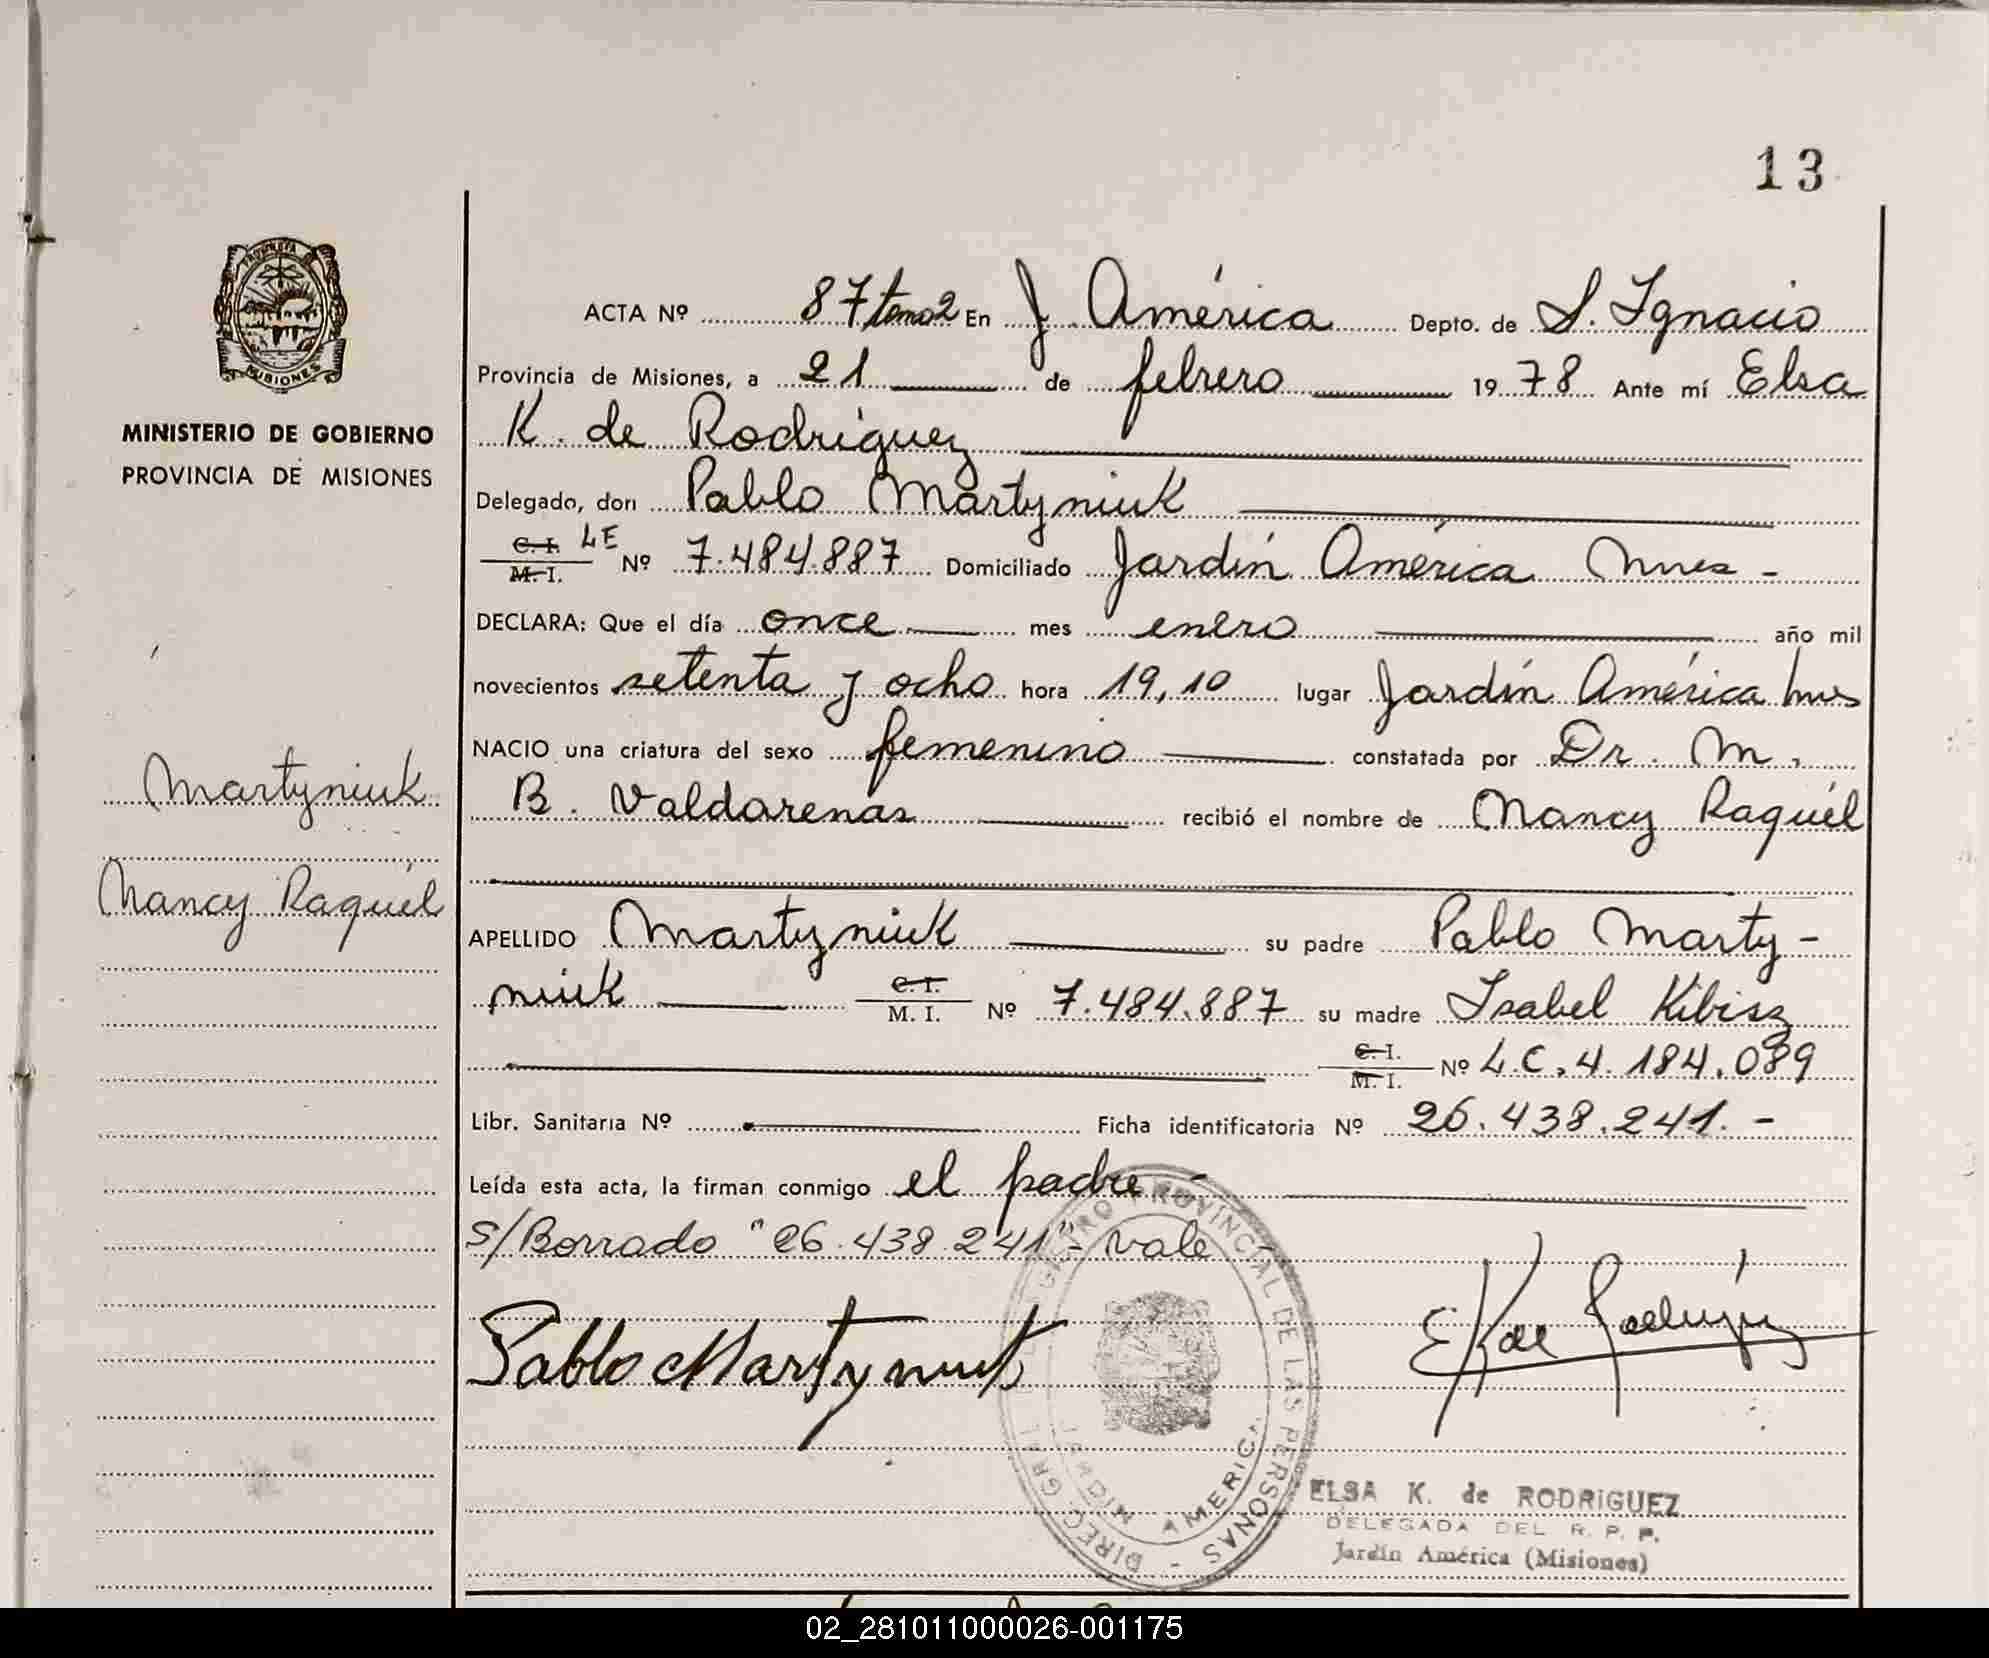 13
PROVINCIA
MISIONES
MINISTERIO DE GOBIERNO
PROVINCIA DE MISIONES
Martyniuk
Nancy Raquél
ACTA Nº 87 tomo 2 En J. América Depto. de S. Ignacio
Provincia de Misiones, a 21 de febrero 1978 Ante mí Elsa
K. de Rodríguez
Delegado, don Pablo Martyniuk
C. I. LE
M. I. Nº 7.484.887 Domiciliado Jardín América Mnes -
DECLARA: Que el día once mes enero año mil
novecientos setenta y ocho hora 19,10 lugar Jardín América Mnes
NACIO una criatura del sexo femenino constatada por Dr. M.
B. Valdarenas recibió el nombre de Nancy Raquél
APELLIDO Martyniuk su padre Pablo Marty-
niuk C. I. M. I. Nº 7.484.887 su madre Isabel Kibisz
C. I. M. I. Nº L.C. 4.184.089
Libr. Sanitaria Nº Ficha identificatoria Nº 26.438.241.-
Leída esta acta, la firman conmigo el padre -
s/Borrado "26.438.241"- vale -
Pablo Martyniuk
E K de Rodríguez
DIREC. GRAL. REGISTRO PROVINCIAL DE LAS PERSONAS -
JARDIN AMERICA
ELSA K. de RODRIGUEZ
DELEGADA DEL R. P. P.
Jardín América (Misiones)
02_281011000026-001175